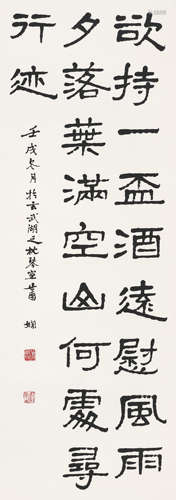 欲持一盃酒遠慰風雨
夕落葉滿空山何處尋
行迹
壬戌冬月於玄武湖之枕琴室蕭嫻